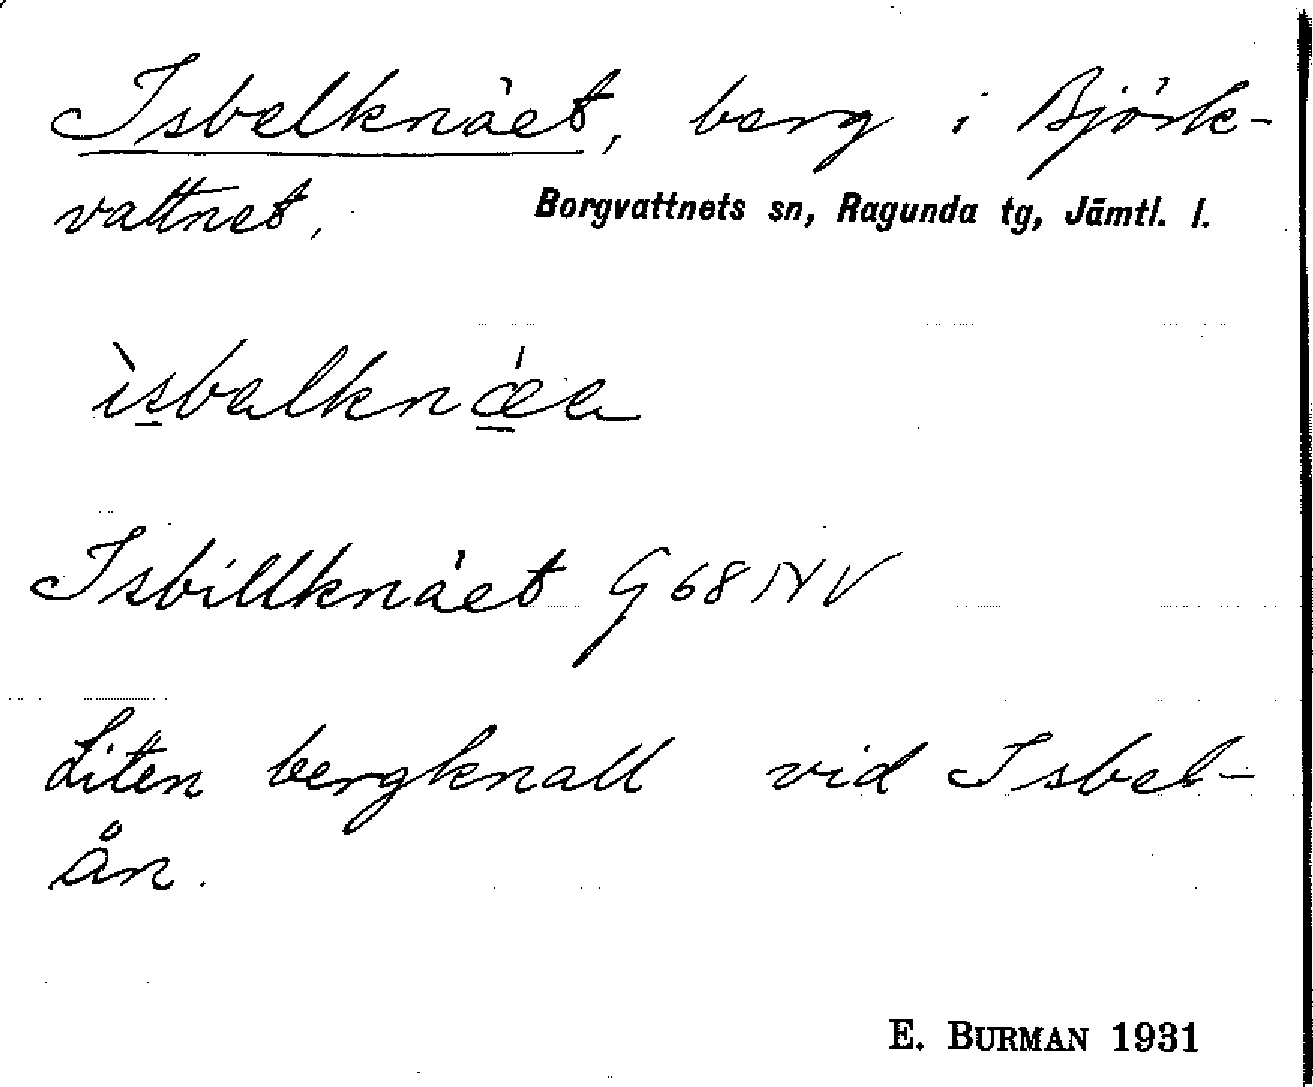 Isbelknäet, berg i Björk-
vattnet.
Borgvattnets sn, Ragunda tg, Jämtl. l.
ìsbalknǽa
Isbillknäet G 68 NV
Liten bergknall vid Isbel-
ån.
E. BURMAN 1931